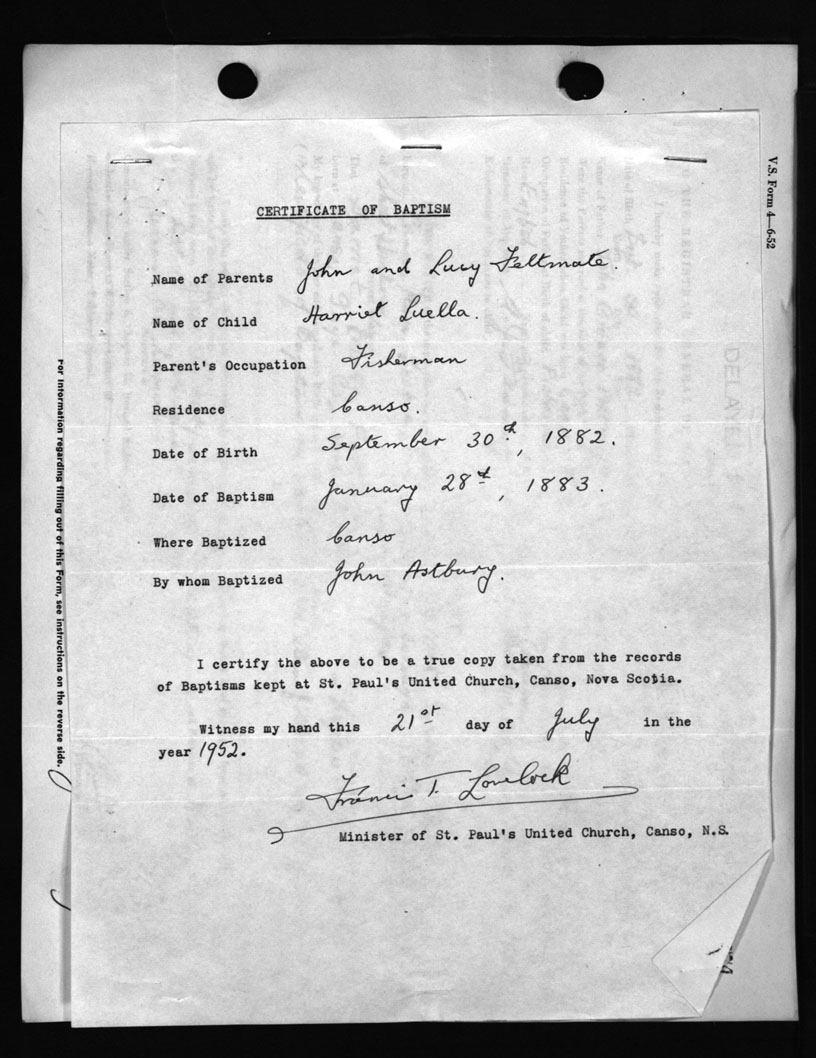 CERTIFICATE OF BAPTISM
Name of Parents John and Lucy Feltmate.
Name of Child Harriet Luella.
Parent's Occupation Fisherman
Residence Canso.
Date of Birth September 30th, 1882.
Date of Baptism January 28th, 1883.
Where Baptized Canso
By whom Baptized John Astbury.
I certify the above to be a true copy taken from the records
of Baptisms kept at St. Paul's United Church, Canso, Nova Scotia.
Witness my hand this 21st day of July in the
year 1952.
Francis T. Lovelock
Minister of St. Paul's United Church, Canso, N.S.
V.S. Form 4—6-52
For information regarding filling out of this Form, see instructions on the reverse side.
DELAYE